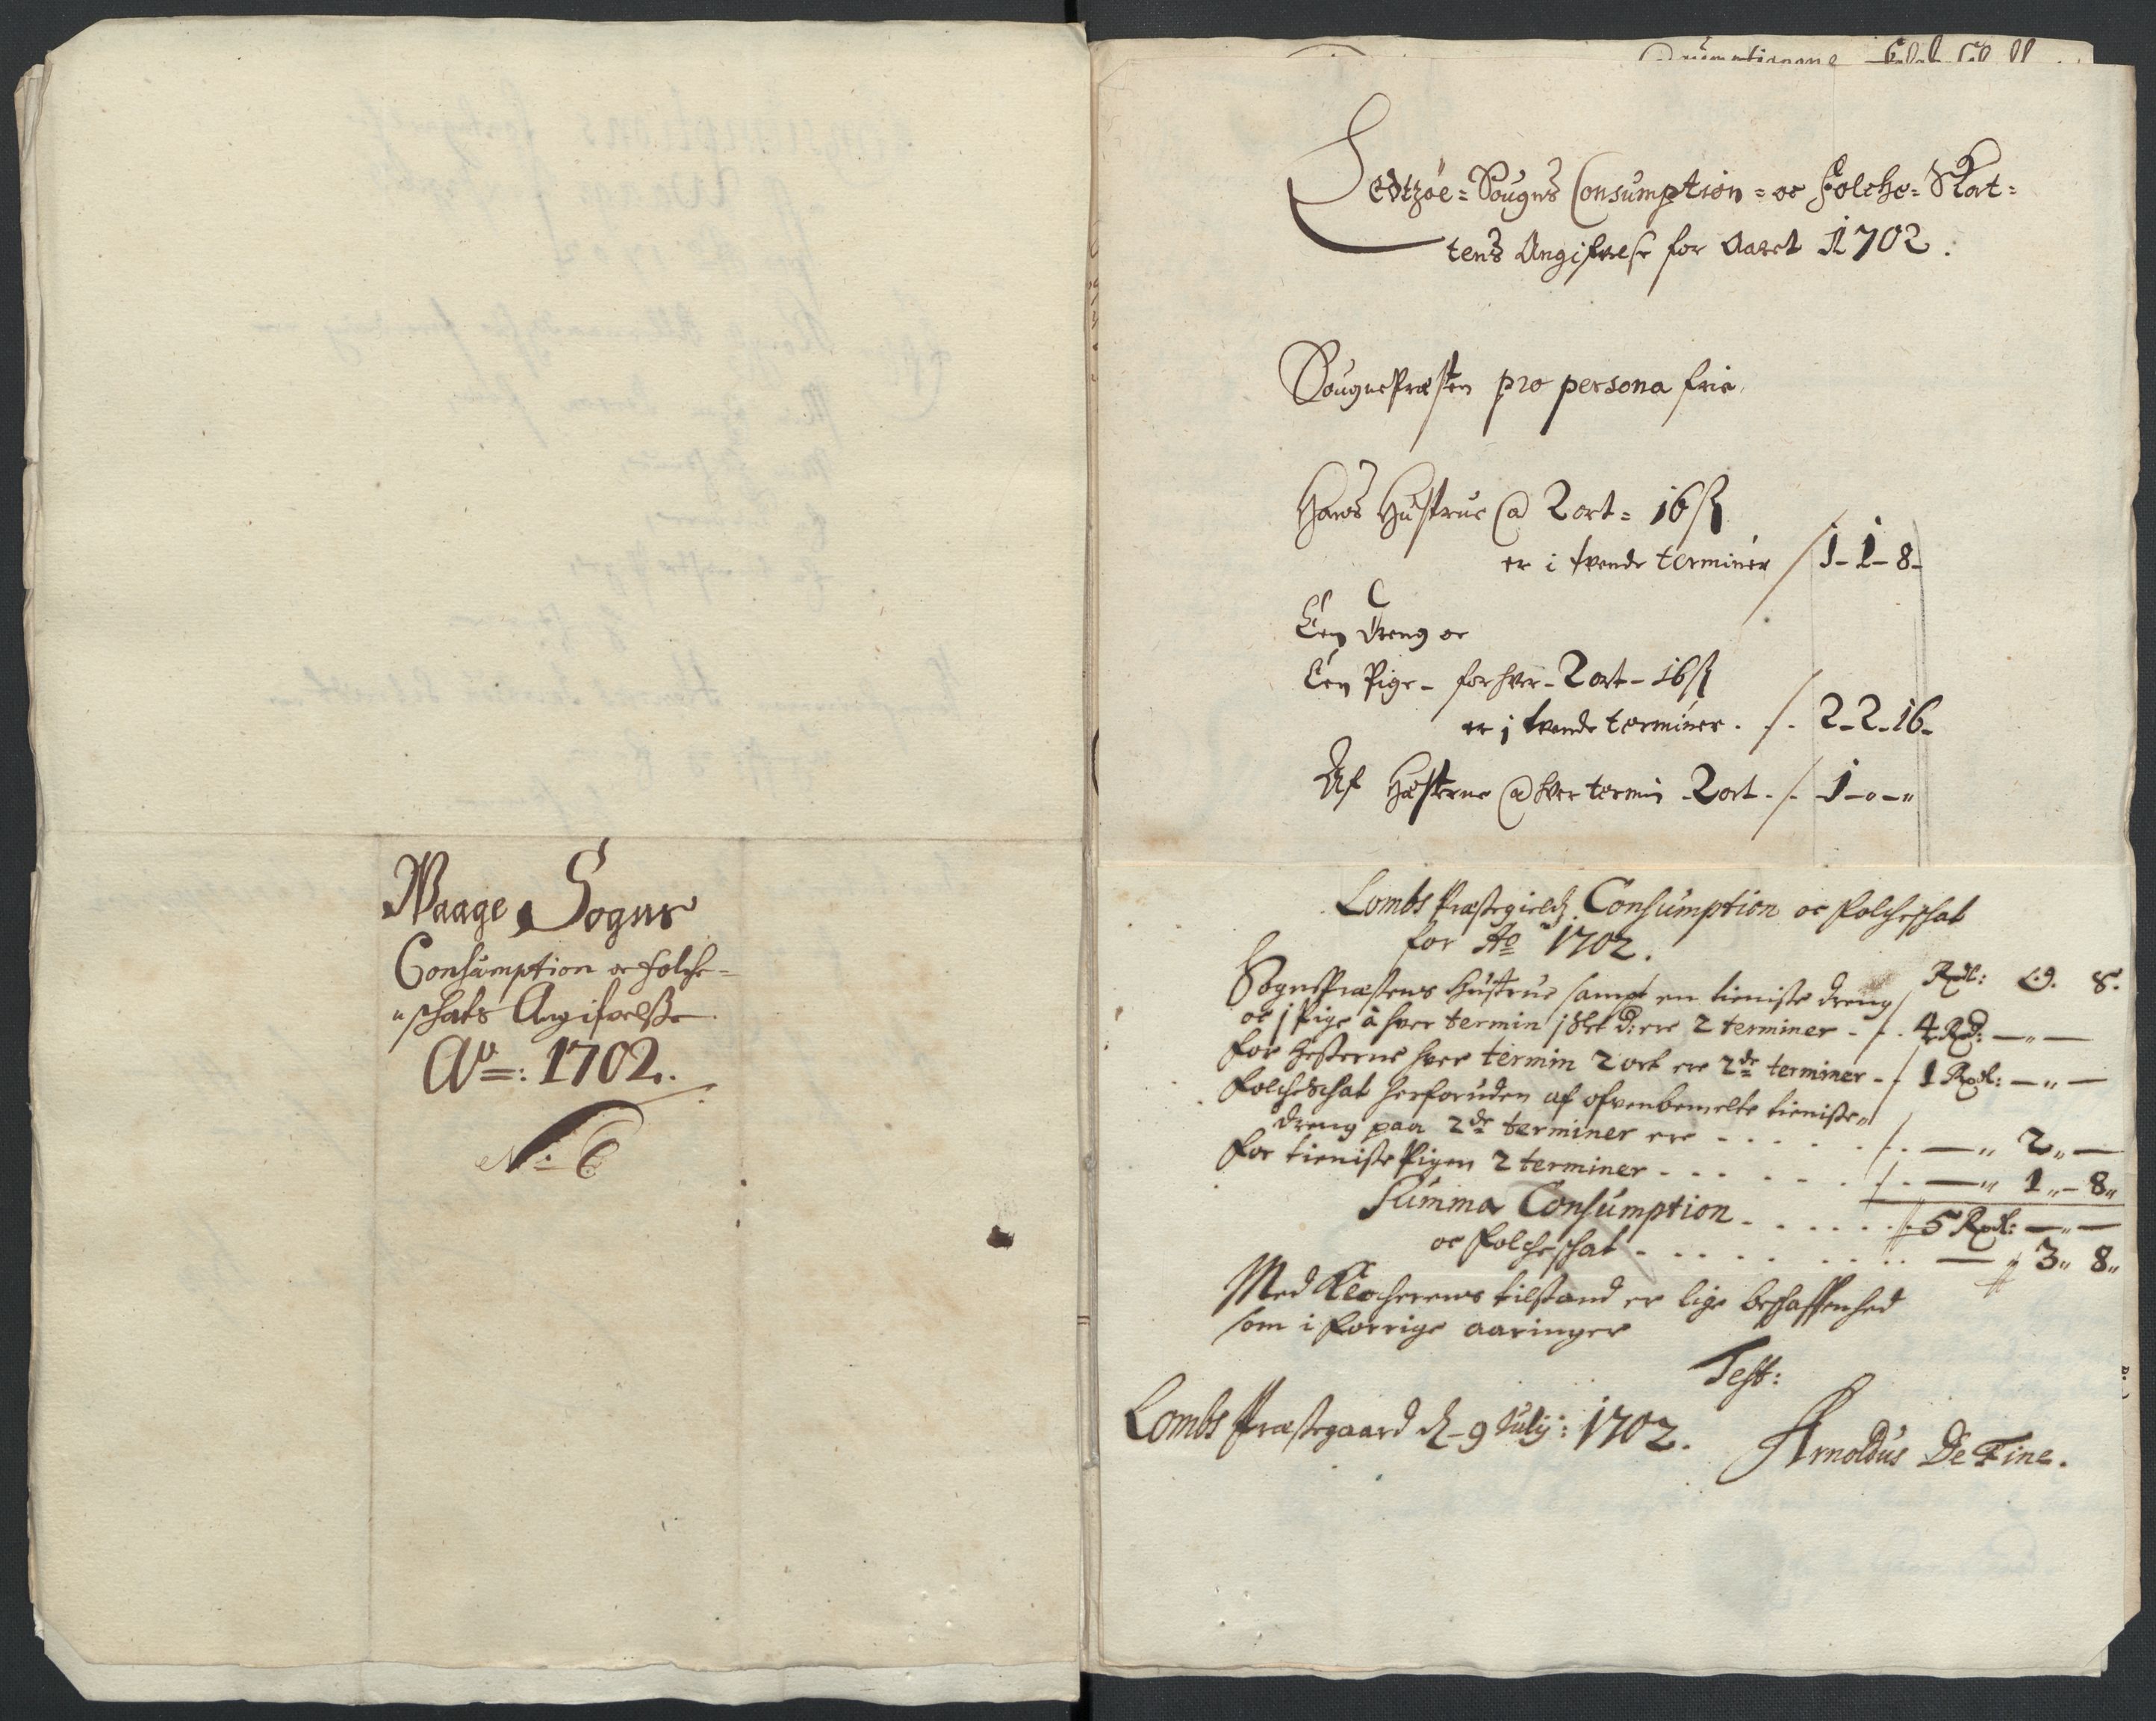 Waage Sogns
Consumption oc folche-
"schats Angifvelsse
Ao: 1702.
No: 6
Ledtzöe = Sougns Consumption = oc Folche = Skat =
tens Angifvelse for Aaret 1702.
Sougnepræsten pro persona frie.
Hans Hustrue @ 2 ort = 16 ß
er i tvende terminer / 1 - 1 - 8 -
Een Dreng oc
Een Pige - for hver - 2 ort - 16 ß
er i tvende terminer . / . 2 - 2 - 16 -
Af Hæsterne @ hver termin - 2 ort - / - 1 - 0 - "
Lombs Præstegield Consumption oc folcheschat
for Ao 1702.
Rdl: 8.
Sognepræstens hustrue sampt en tieniste dreng
oc j Pige à hver termin ere 2 terminer - - 4 Rd: — " —
for hesterne hver termin 2 ort ere 2de terminer - - 1 Rdl: — " —
folcheschat herforuden af ofvenbemelte tieniste"
dreng paa 2de terminer ere - - - - - — " 2 " —
for tieniste Pigen 2 terminer - - - - - — " 1 " - 8 "
Summa Consumption - - - - - 5 Rdl: — " —
oc folcheschat - - - - - — " 3 " 8 "
Med Klocherens tilstand er lige beschaffenhed
som i forrige aaringer
Test:
Lombs Præstegaard d - 9 July: 1702.
Arnoldus De Fine.